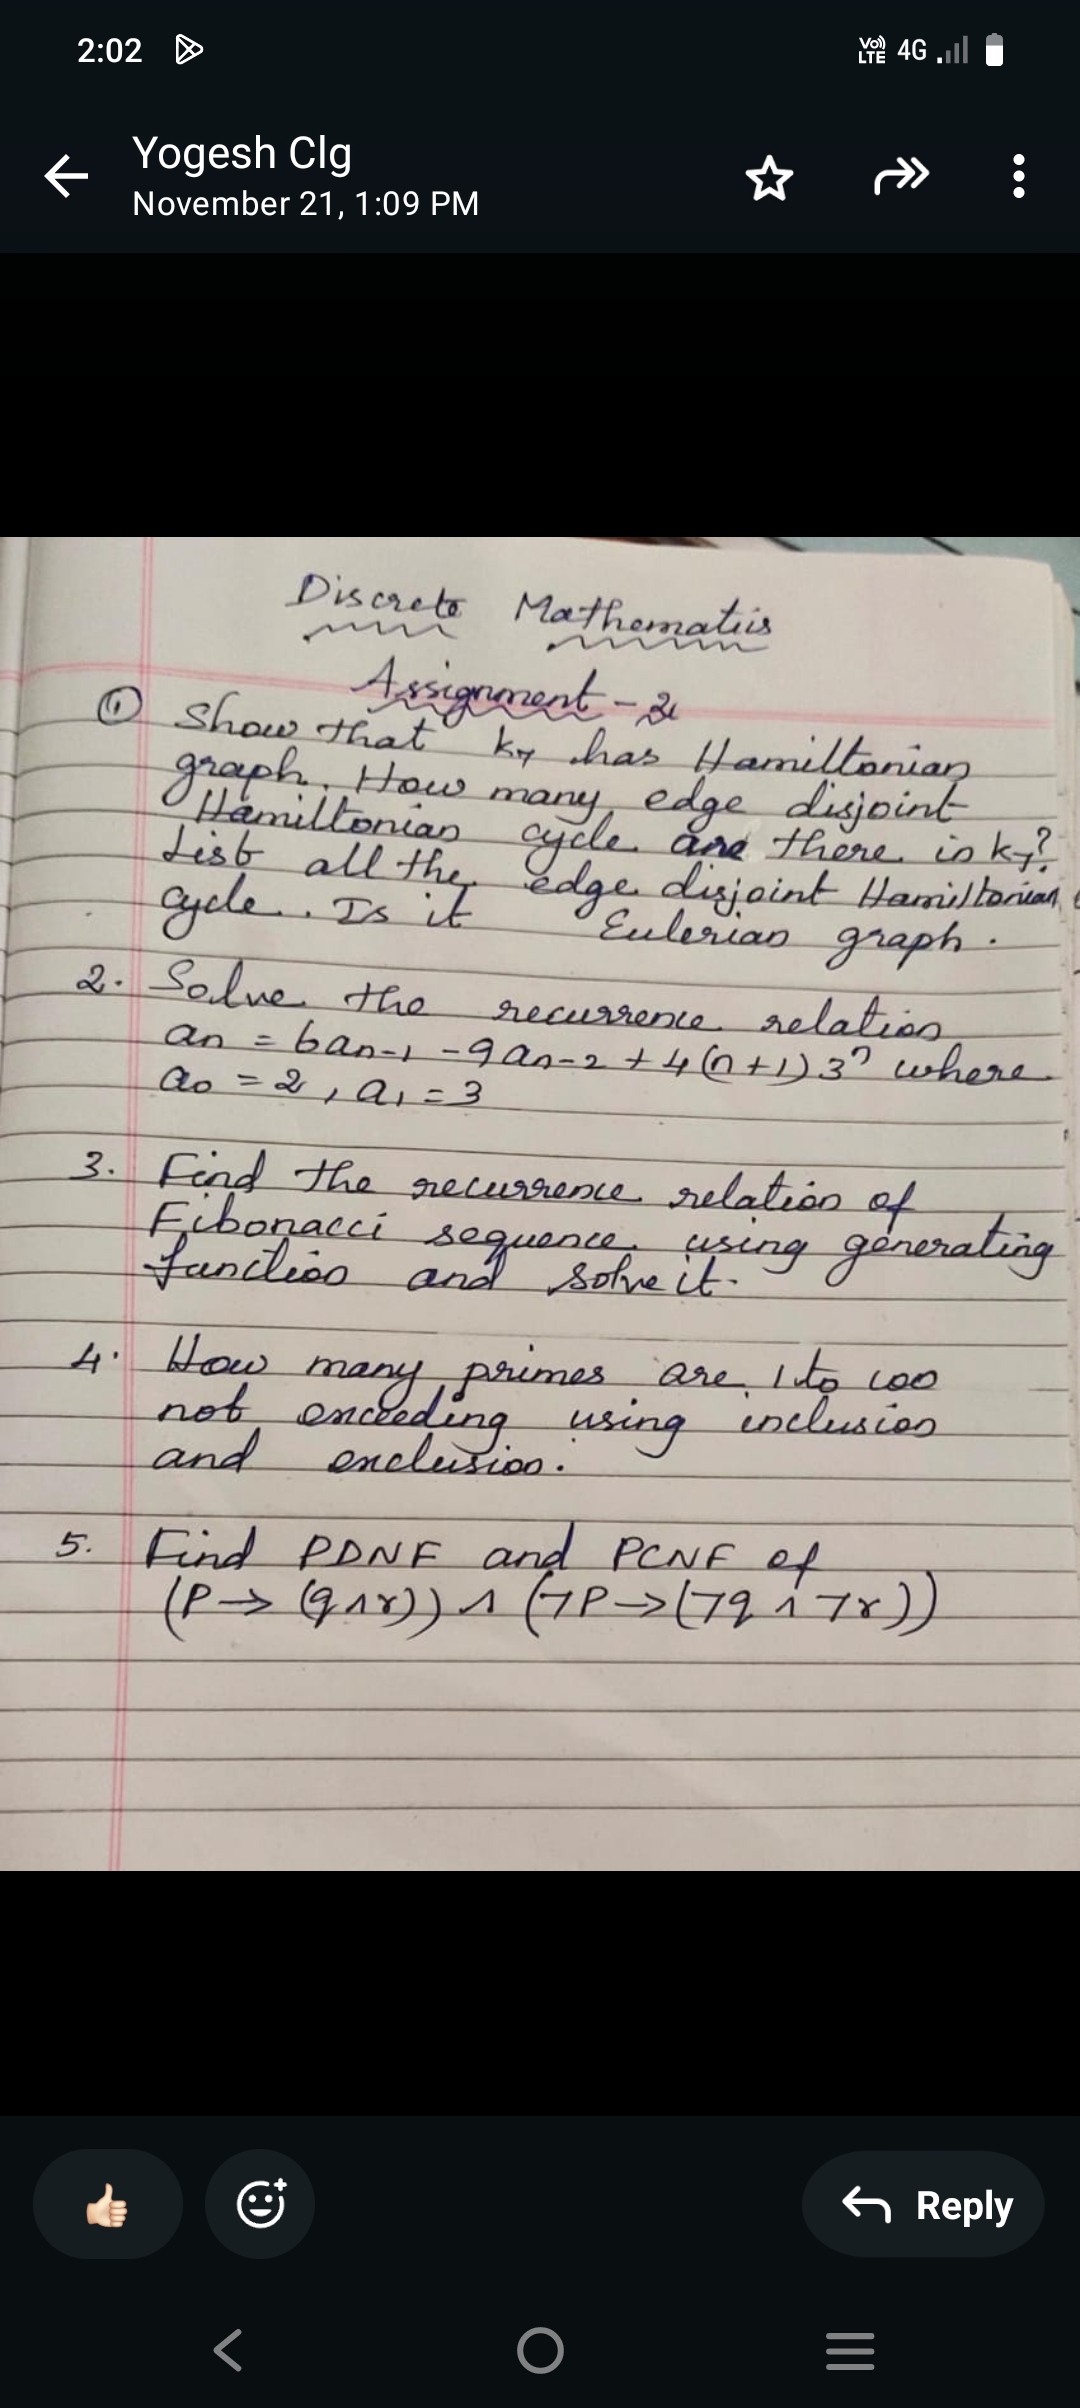 2:02
Vo) LTE 4G
Yogesh Clg
November 21, 1:09 PM
Discrete Mathematics
Assignment - 2
① Show that K7 has Hamiltonian
graph. How many edge disjoint
Hamiltonian cycle are there in K7?
List all the edge disjoint Hamiltonian
cycle. Is it Eulerian graph.
2. Solve the recurrence relation
an = 6an-1 - 9an-2 + 4(n+1)3ⁿ where
a0 = 2, a1 = 3
3. Find the recurrence relation of
Fibonacci sequence using generating
function and solve it.
4. How many primes are 1 to 100
not exceeding using inclusion
and exclusion.
5. Find PDNF and PCNF of
(P → (q ∧ r)) ∧ (¬P → (¬q ∧ ¬r))
Reply